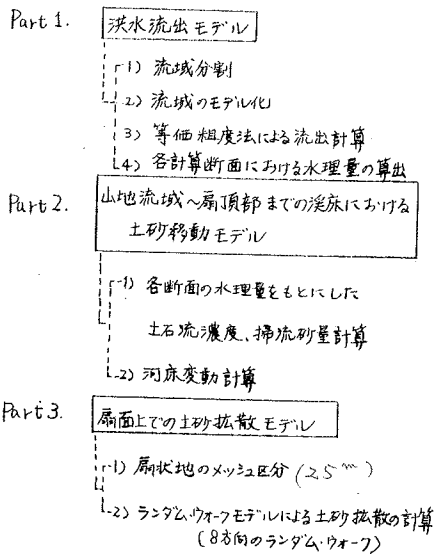 Part 1. 洪水流出モデル
1) 流域分割
2) 流域のモデル化
3) 等価粗度法による流出計算
4) 各計算断面における水理量の算出
Part 2. 山地流域~扇頂部までの渓床における
土砂移動モデル
1) 各断面の水理量をもとにした
土石流濃度、掃流砂量計算
2) 河床変動計算
Part 3. 扇面上での土砂拡散モデル
1) 扇状地のメッシュ区分 (25m)
2) ランダム・ウォークモデルによる土砂拡散の計算
(8方向のランダム・ウォーク)